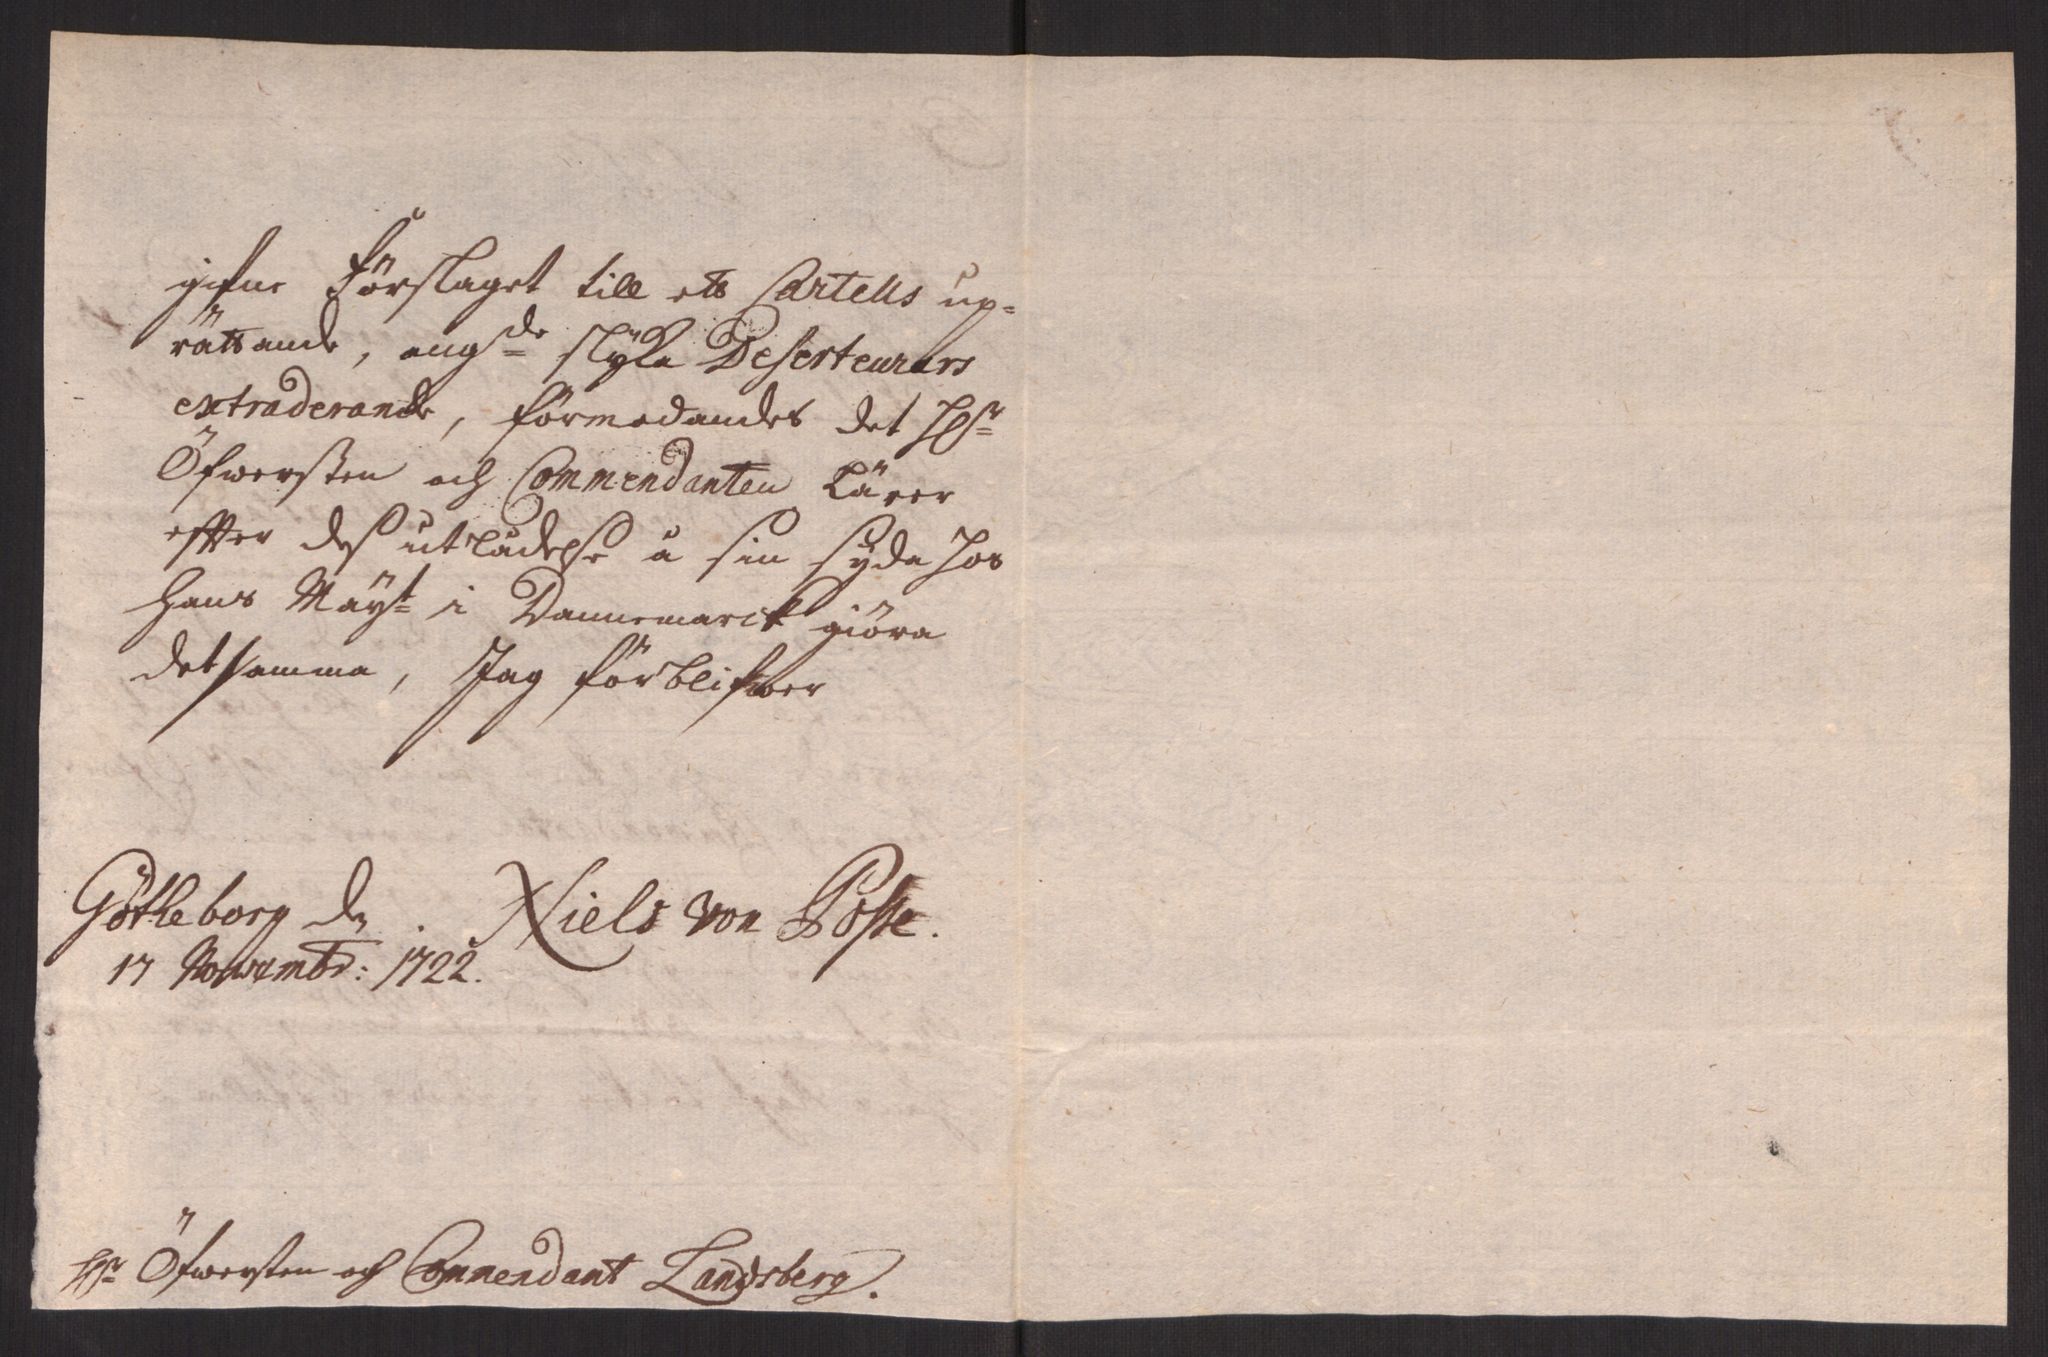 gifne Förslaget till ett Cartells up-
rättande, angde slyka Deserteurers
extraderande, förmodandes det Hr
Öfwersten och Commendanten lärer
effter des utlåtelse å sin syda hos
hans Mayt i Dannemarck giöra
detsamma, Jag förblifwer
Götheborg de
Niels von Posse.
17 Novembr: 1722.
Hr Öfwersten och Commendant Landsberg.